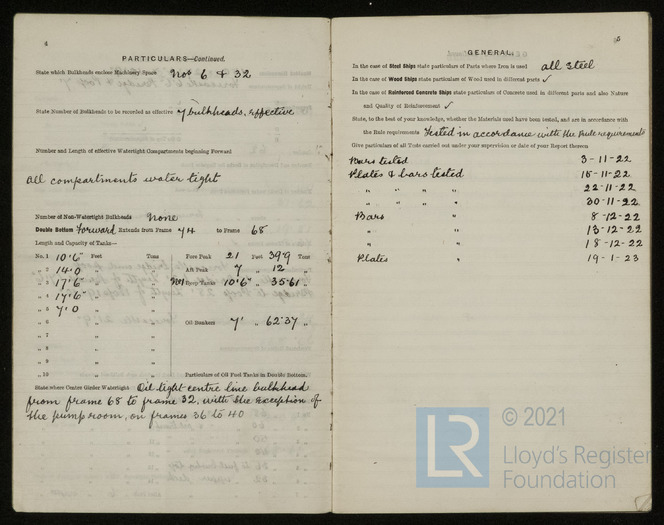 4
PARTICULARS—Continued.
State which Bulkheads enclose Machinery Space Nos 6 & 32
State Number of Bulkheads to be recorded as effective 7 bulkheads, effective
Number and Length of effective Watertight Compartments beginning Forward
All compartments water tight
Number of Non-Watertight Bulkheads None
Double Bottom Forward Extends from Frame 74 to Frame 68
Length and Capacity of Tanks—
No. 1 10'6" Feet Tons Fore Peak 21 Feet 39.9 Tons
„ 2 14'0 „ „ Aft Peak 7 „ 12 „
„ 3 17'6" „ „ No1 Deep Tanks 10'6" „ 35.61 „
„ 4 17'6" „ „
„ 5 7'0 „ „
„ 6 „ „ Oil Bunkers 7' „ 62.37 „
„ 7 „ „
„ 8 „ „
„ 9 „ „
„ 10 „ „ Particulars of Oil Fuel Tanks in Double Bottom.
State where Centre Girder Watertight Oil tight centre line bulkhead
from frame 68 to frame 32, with the exception of
the pump room, on frames 36 to 40
5
GENERAL.
In the case of Steel Ships state particulars of Parts where Iron is used all steel
In the case of Wood Ships state particulars of Wood used in different parts ✓
In the case of Reinforced Concrete Ships state particulars of Concrete used in different parts and also Nature
and Quality of Reinforcement ✓
State, to the best of your knowledge, whether the Materials used have been tested, and are in accordance with
the Rule requirements Tested in accordance with the Rule requirements
Give particulars of all Tests carried out under your supervision to date of your Report thereon
Bars tested 3-11-22
Plates & bars tested 15-11-22
„ „ „ „ 22-11-22
„ „ „ „ 30-11-22
Bars „ 8-12-22
„ „ 13-12-22
„ „ 18-12-22
Plates „ 19-1-23
© 2021
LR
Lloyd's Register
Foundation